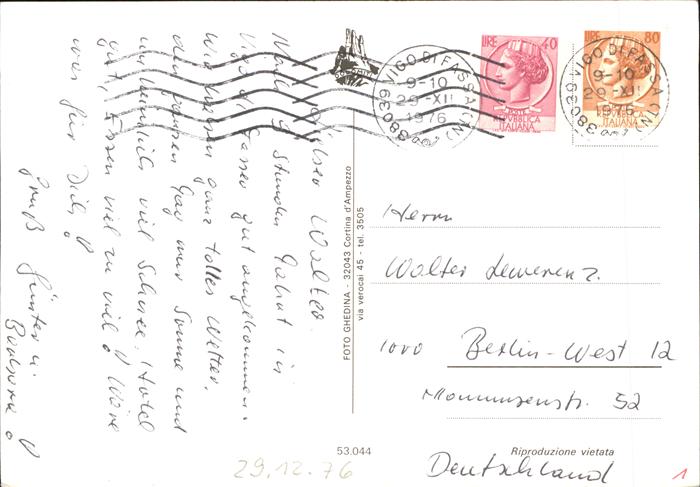 Lieber Walter.
Nach 9 Stunden Fahrt in
Vigo d. Fassa gut angekommen.
Wir haben ganz tolles Wetter.
den ganzen Tag nur Sonne und
viel Schnee. Hotel
gut, Essen viel zu viel! Wäre
was für Dich!
Gruß Günter u.
Barbara
FOTO GHEDINA - 32043 Cortina d'Ampezzo
via verocai 45 - tel. 3505
38039 VIGO DI FASSA (TN)
9-10
29-XII
1976
LIRE 40
POSTE
REPVBBLICA
ITALIANA
LIRE 80
REPVBBLICA
ITALIANA
38039 VIGO DI FASSA (TN)
9-10
29-XII
1976
Herrn
Walter Lewerenz.
1000 Berlin-West 12
Mommsenstr. 52
Deutschland
53.044
Riproduzione vietata
29.12.76
1